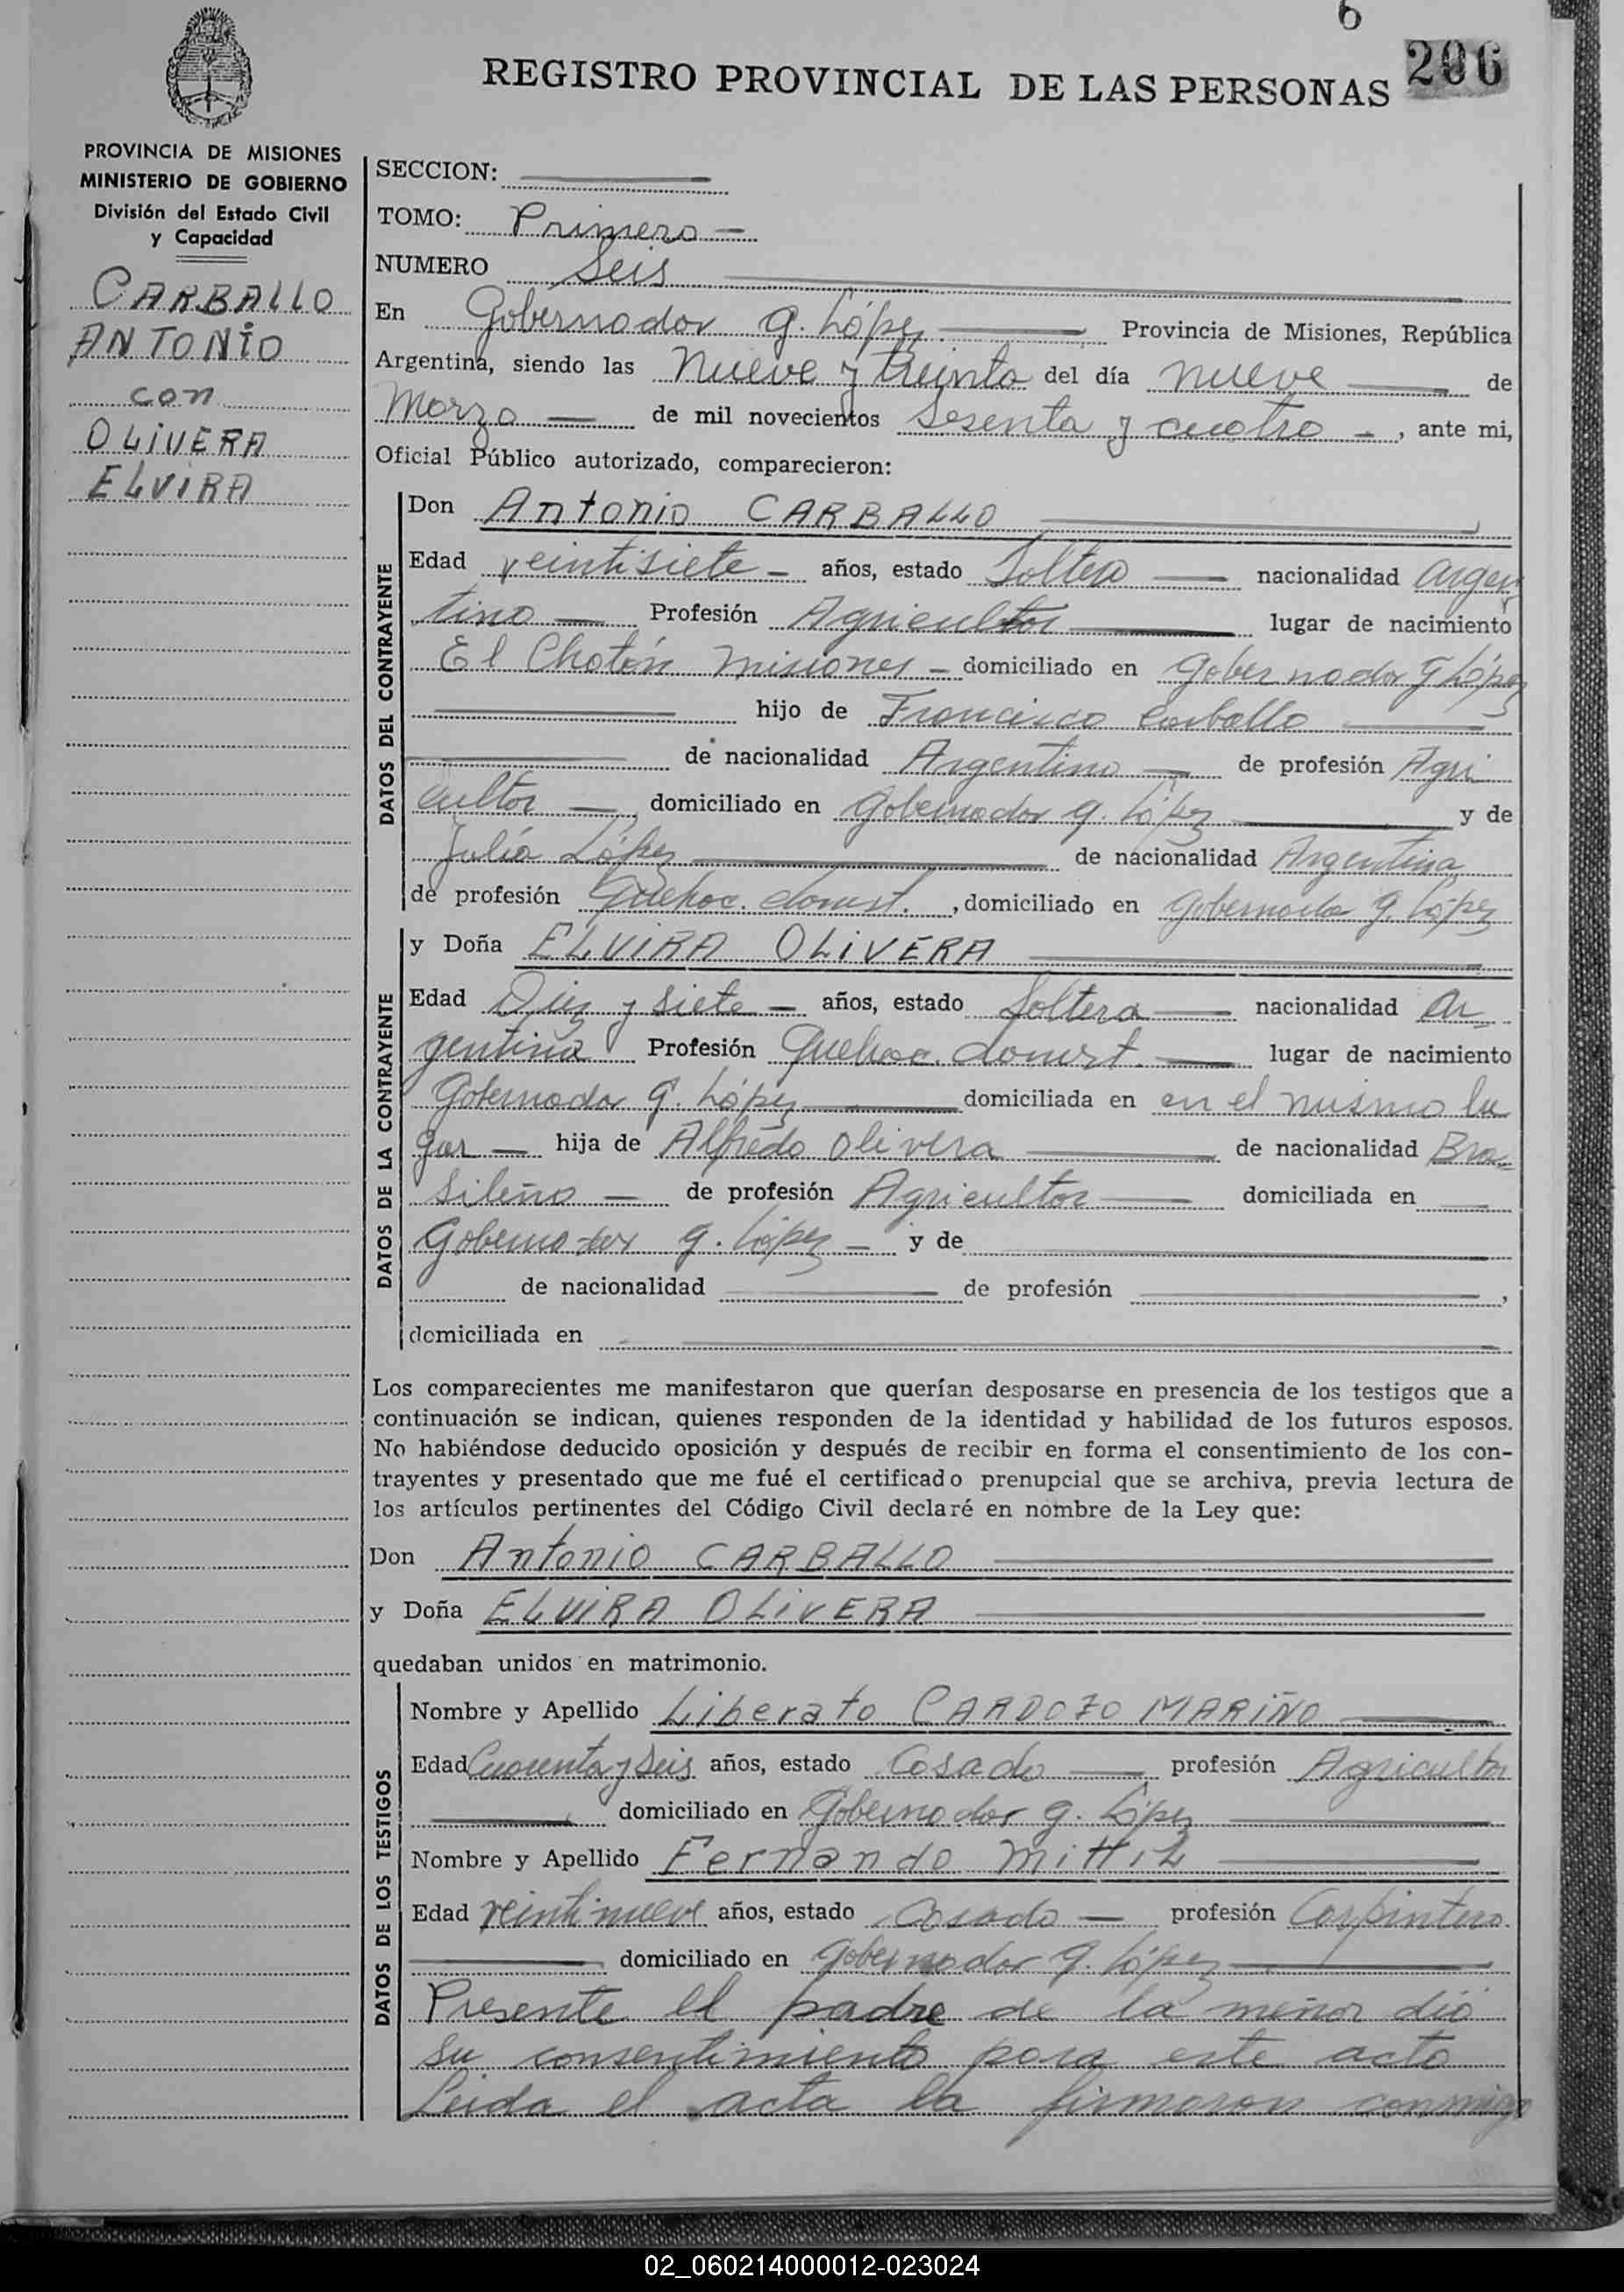 6
REGISTRO PROVINCIAL DE LAS PERSONAS 206
PROVINCIA DE MISIONES
MINISTERIO DE GOBIERNO
División del Estado Civil
y Capacidad
CARBALLO
ANTONIO
con
OLIVERA
ELVIRA
SECCION:
TOMO: Primero
NUMERO Seis
En Gobernador G. López Provincia de Misiones, República
Argentina, siendo las Nueve y treinta del día nueve de
Marzo de mil novecientos Sesenta y cuatro, ante mi,
Oficial Público autorizado, comparecieron:
DATOS DEL CONTRAYENTE
Don Antonio CARBALLO
Edad veintisiete años, estado Soltero nacionalidad argen
tino Profesión Agricultor lugar de nacimiento
El Chatón Misiones domiciliado en Gobernador G López
hijo de Francisco Carballo
de nacionalidad Argentino de profesión Agri
cultor domiciliado en Gobernador G. López y de
Julia López de nacionalidad Argentina
de profesión Quehac. domest. , domiciliado en Gobernador G. López
DATOS DE LA CONTRAYENTE
y Doña ELVIRA OLIVERA
Edad Diez y siete años, estado Soltera nacionalidad Ar
gentina Profesión Quehac. domest. lugar de nacimiento
Gobernador G. López domiciliada en en el mismo lu
gar hija de Alfredo Olivera de nacionalidad Bra
sileño de profesión Agricultor domiciliada en
Gobernador G. López y de
de nacionalidad de profesión ,
domiciliada en
Los comparecientes me manifestaron que querían desposarse en presencia de los testigos que a
continuación se indican, quienes responden de la identidad y habilidad de los futuros esposos.
No habiéndose deducido oposición y después de recibir en forma el consentimiento de los con-
trayentes y presentado que me fué el certificado prenupcial que se archiva, previa lectura de
los artículos pertinentes del Código Civil declaré en nombre de la Ley que:
Don Antonio CARBALLO
y Doña ELVIRA OLIVERA
quedaban unidos en matrimonio.
DATOS DE LOS TESTIGOS
Nombre y Apellido Liberato CARDOZO MARIÑO
Edad Cuarenta y Seis años, estado Casado profesión Agricultor
domiciliado en Gobernador G. López
Nombre y Apellido Fernando
Edad veintinueve años, estado Casado profesión Carpintero
domiciliado en Gobernador G. López
Presente el padre de la menor dió
su consentimiento para este acto
Leida el acta la firmaron conmigo
02_060214000012-023024